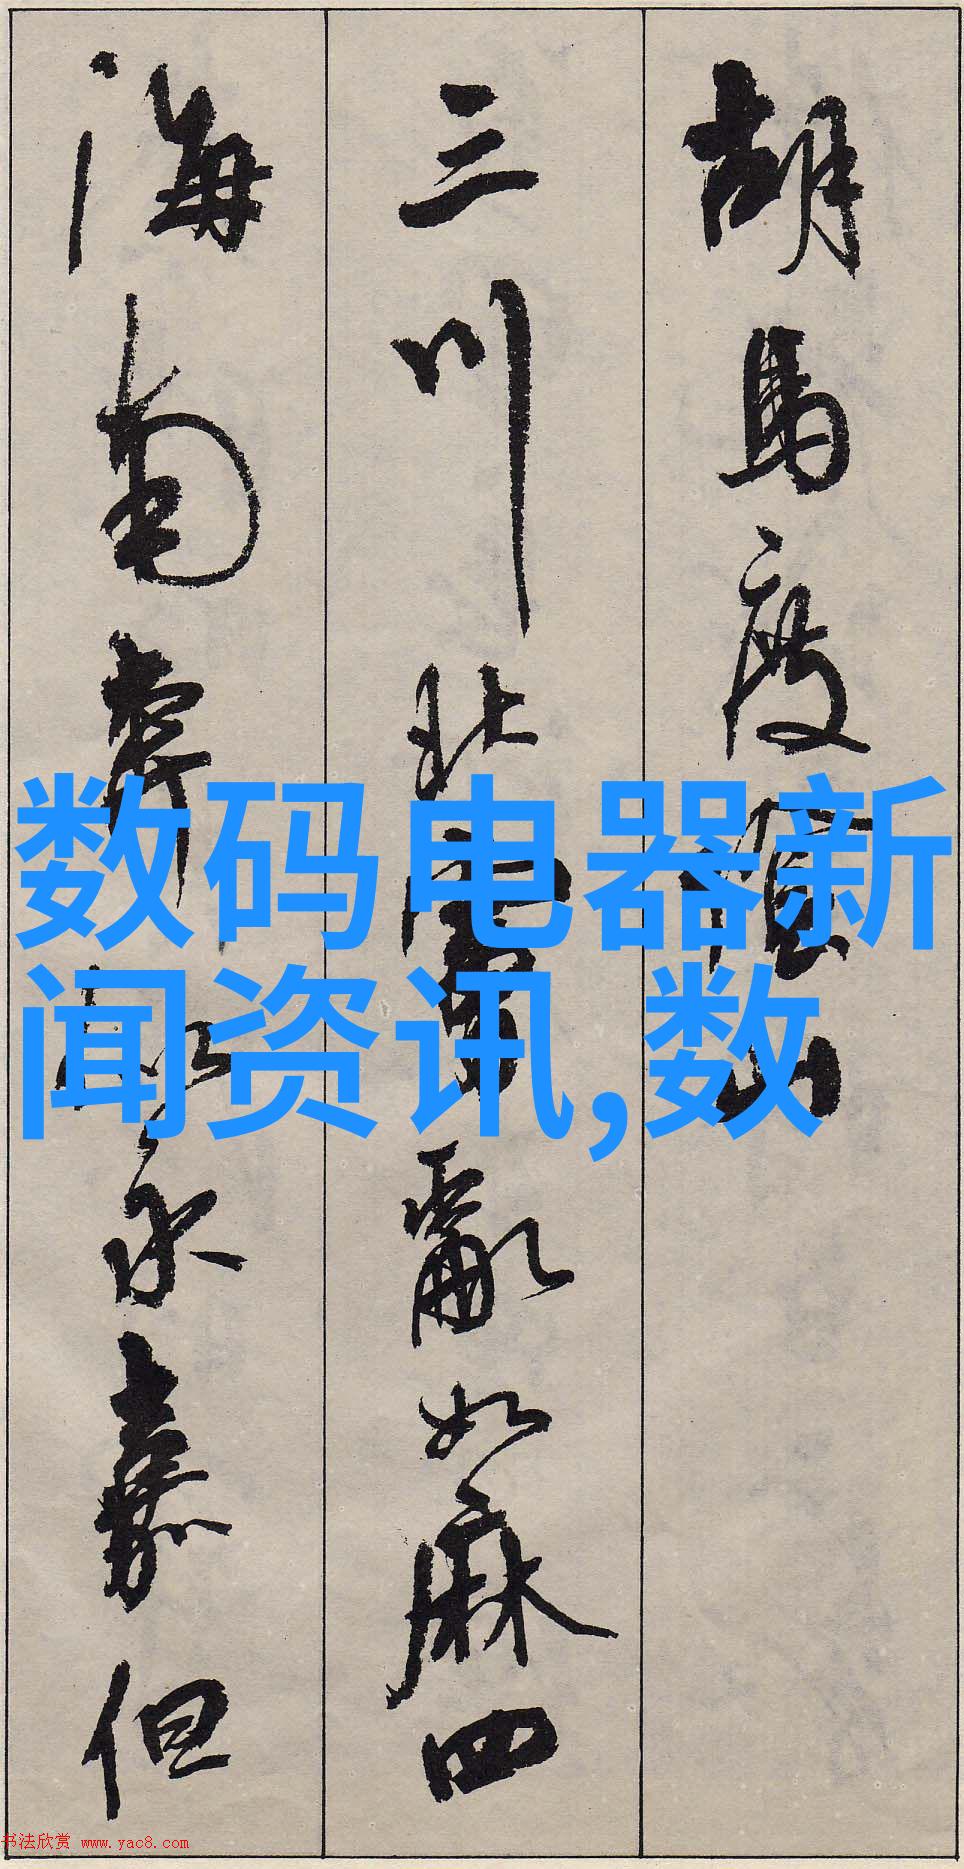 胡馬度隂山
三川北虜亂如麻四
海南奔似永嘉但
数码电器新
闻资讯,数
书法欣赏 www.yac8.com